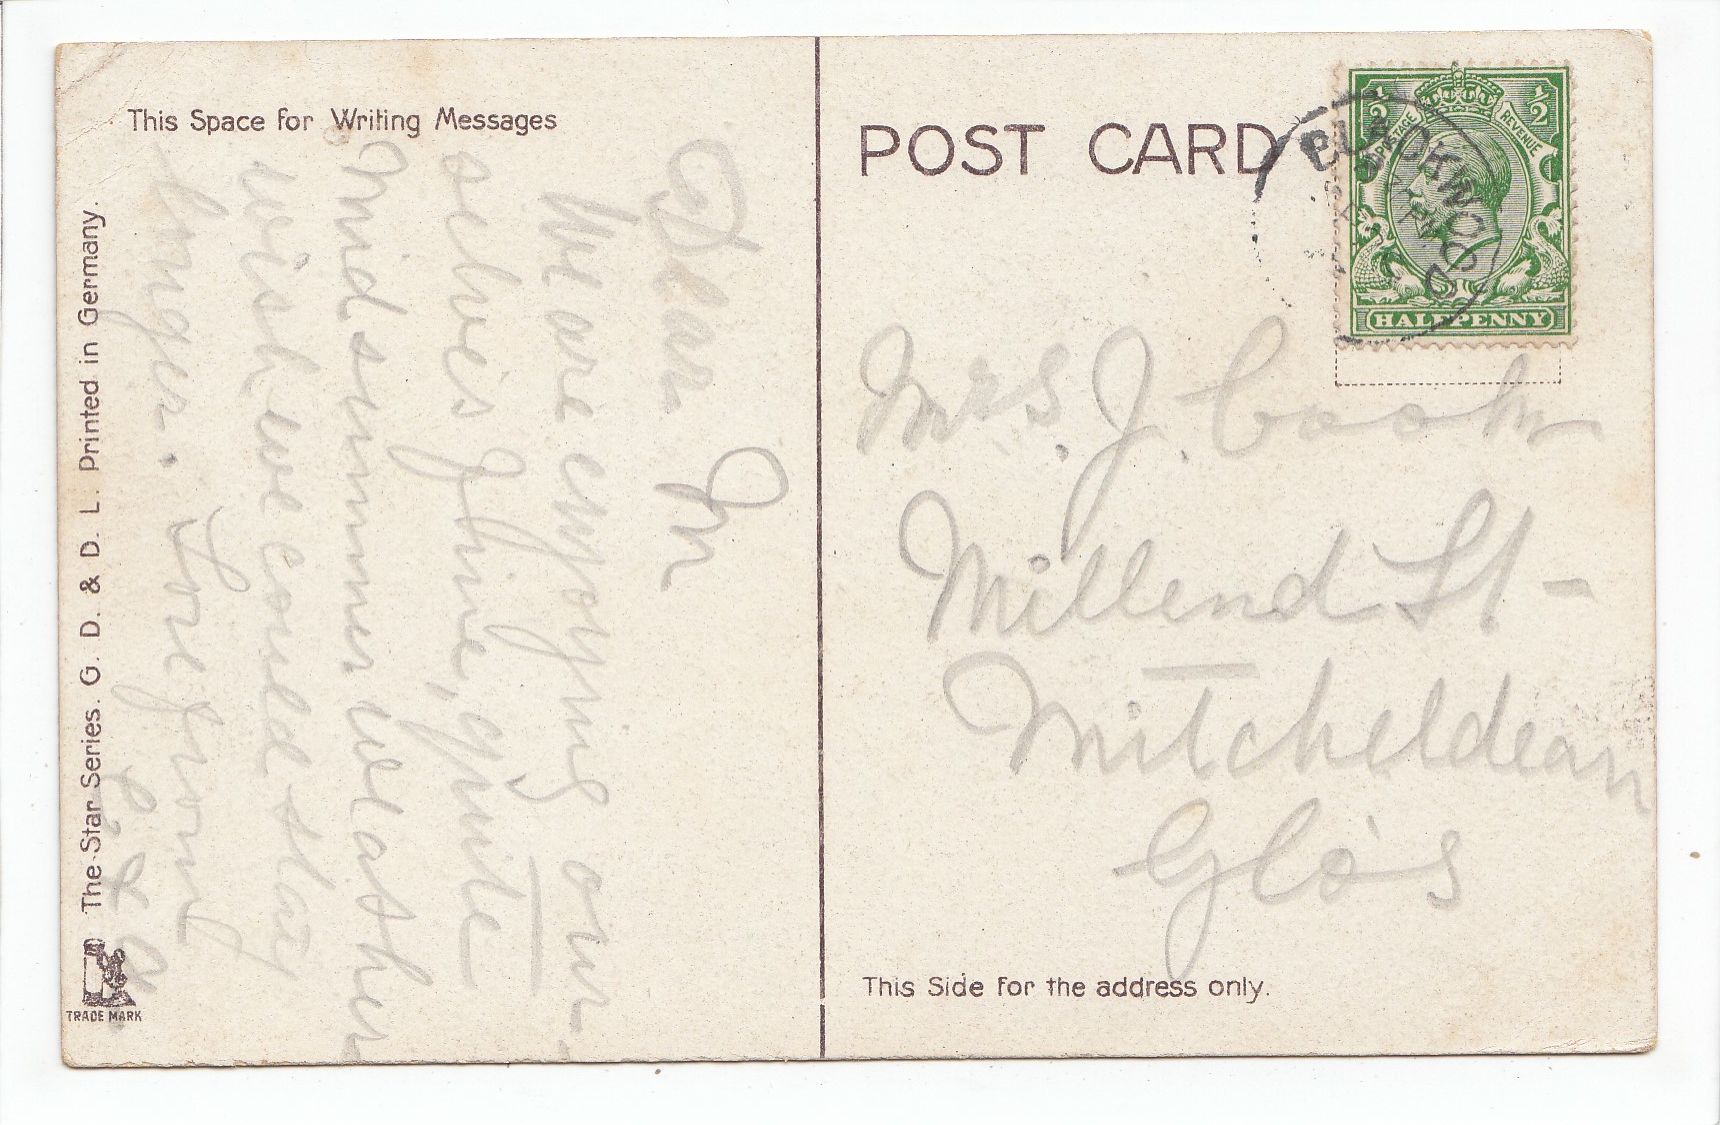 This Space for Writing Messages
Dear M
We are enjoying our-
selves fine, quite
Mid summer weather
wish we could stay
longer. Love from
The Star Series. G. D. & D. L. Printed in Germany.
TRADE MARK
POST CARD
½ ½
POSTAGE REVENUE
HALFPENNY
Mrs. J. Cook
Millend St -
Mitcheldean
Glos
This Side for the address only.